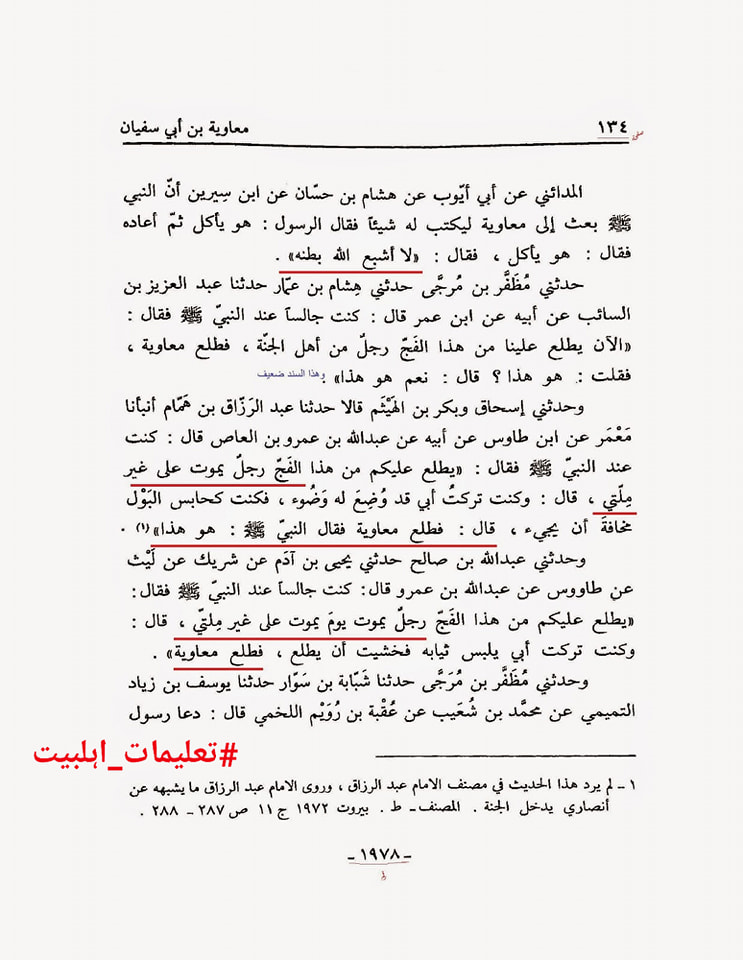 ١٣٤ معاوية بن أبي سفيان
صفحہ
المدائني عن أبي أيّوب عن هشام بن حسّان عن ابن سِيرين أنّ النبي
ﷺ بعث إلى معاوية ليكتب له شيئاً فقال الرسول : هو يأكل ثمّ أعاده
فقال : هو يأكل ، فقال : «لا أشبع الله بطنه» .
حدثني مُظَفَّر بن مُرجَّى حدثني هِشام بن عمّار حدثنا عبد العزيز بن
السائب عن أبيه عن ابن عمر قال : كنت جالساً عند النبيّ ﷺ فقال :
«الآن يطلع علينا من هذا الفَجّ رجلٌ من أهل الجنّة ، فطلع معاوية ،
فقلت : هو هذا ؟ قال : نعم هو هذا» . وهذا السند ضعيف
وحدثني إسحاق وبكر بن الهَيْثَم قالا حدثنا عبد الرَزّاق بن هَمّام أنبأنا
مَعْمَر عن ابن طاوس عن أبيه عن عبدالله بن عمرو بن العاص قال : كنت
عند النبيّ ﷺ فقال : «يطلع عليكم من هذا الفَجّ رجلٌ يموت على غير
مِلّتي ، قال : وكنت تركتُ أبي قد وُضِعَ له وَضُوء ، فكنت كحابس البَوْل
مخافةَ أن يجيء ، قال : فطلع معاوية فقال النبيّ ﷺ : هو هذا» (١) .
وحدثني عبدالله بن صالح حدثني يحيى بن آدَم عن شريك عن لَيْث
عن طاووس عن عبدالله بن عمرو قال: كنت جالساً عند النبيّ ﷺ فقال:
«يطلع عليكم من هذا الفَجّ رجلٌ يموت يومَ يموت على غير مِلتّي ، قال :
وكنت تركت أبي يلبس ثيابه فخشيت أن يطلع ، فطلع معاوية» .
وحدثني مُظَفَّر بن مُرَجَّى حدثنا شَبّابة بن سَوّار حدثنا يوسف بن زياد
التميمي عن محمّد بن شُعَيب عن عُقْبة بن رُوَيْم اللخمي قال : دعا رسول
#تعلیمات_اہلبیت
١ ـ لم يرد هذا الحديث في مصنف الامام عبد الرزاق ، وروى الامام عبد الرزاق ما يشبهه عن
أنصاري يدخل الجنة . المصنف ـ ط . بيروت ١٩٧٢ ج ١١ ص ٢٨٧ ـ ٢٨٨ .
ـ ١٩٧٨ ـ